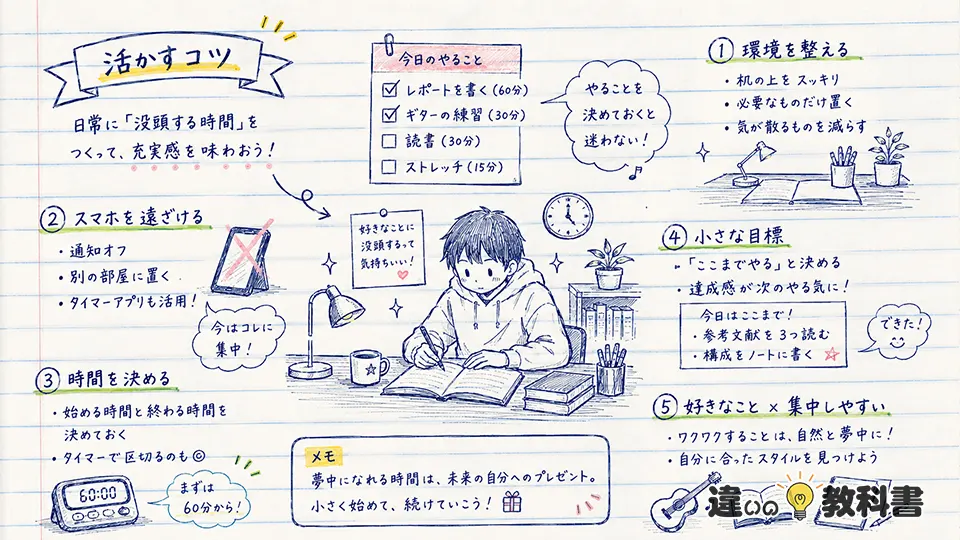 活かすコツ
日常に「没頭する時間」を
つくって、充実感を味わおう！
今日のやること
レポートを書く(60分)
ギターの練習(30分)
読書(30分)
ストレッチ(15分)
やることを
決めておくと
迷わない！
① 環境を整える
・机の上をスッキリ
・必要なものだけ置く
・気が散るものを減らす
② スマホを遠ざける
・通知オフ
・別の部屋に置く
・タイマーアプリも活用！
今はコレに
集中！
好きなことに
没頭するって
気持ちいい！
④ 小さな目標
・「ここまでやる」と決める
・達成感が次のやる気に！
今日はここまで！
・参考文献を3つ読む
・構成をノートに書く
できた！
③ 時間を決める
・始める時間と終わる時間を
決めておく
・タイマーで区切るのも◎
60:00
まずは
60分から！
メモ
夢中になれる時間は、未来の自分へのプレゼント。
小さく始めて、続けていこう！
⑤ 好きなこと × 集中しやすい
・ワクワクすることは、自然と夢中に！
・自分に合ったスタイルを見つけよう
違いの教科書